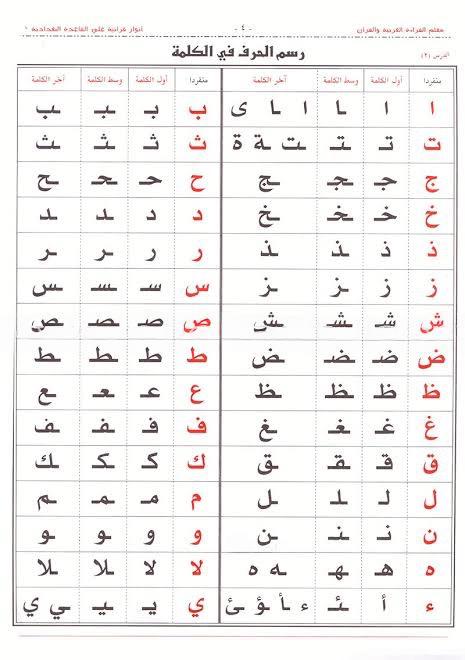 معلم القراءة العربية والقرآن - ٤ - أنوار قرآنية على القاعدة البغدادية
الدرس (٢) رسم الحرف في الكلمة
منفردا أول الكلمة وسط الكلمة آخر الكلمة منفردا أول الكلمة وسط الكلمة آخر الكلمة
ا ا ـا ا ـا ى ب بـ ـبـ ـب
ت تـ ـتـ ـت ـة ة ث ثـ ـثـ ـث
ج جـ ـجـ ـج ح حـ ـحـ ـح
خ خـ ـخـ ـخ د د ـد ـد
ذ ذ ـذ ـذ ر ر ـر ـر
ز ز ـز ـز س سـ ـسـ ـس
ش شـ ـشـ ـش ص صـ ـصـ ـص
ض ضـ ـضـ ـض ط طـ ـطـ ـط
ظ ظـ ـظـ ـظ ع عـ ـعـ ـع
غ غـ ـغـ ـغ ف فـ ـفـ ـف
ق قـ ـقـ ـق ك كـ ـكـ ـك
ل لـ ـلـ ـل م مـ ـمـ ـم
ن نـ ـنـ ـن و و ـو ـو
ه هـ ـهـ ـه ه لا لا ـلا ـلا
ء أ ـئـ ء ـأ ـؤ ـئ ي يـ ـيـ ـي ي